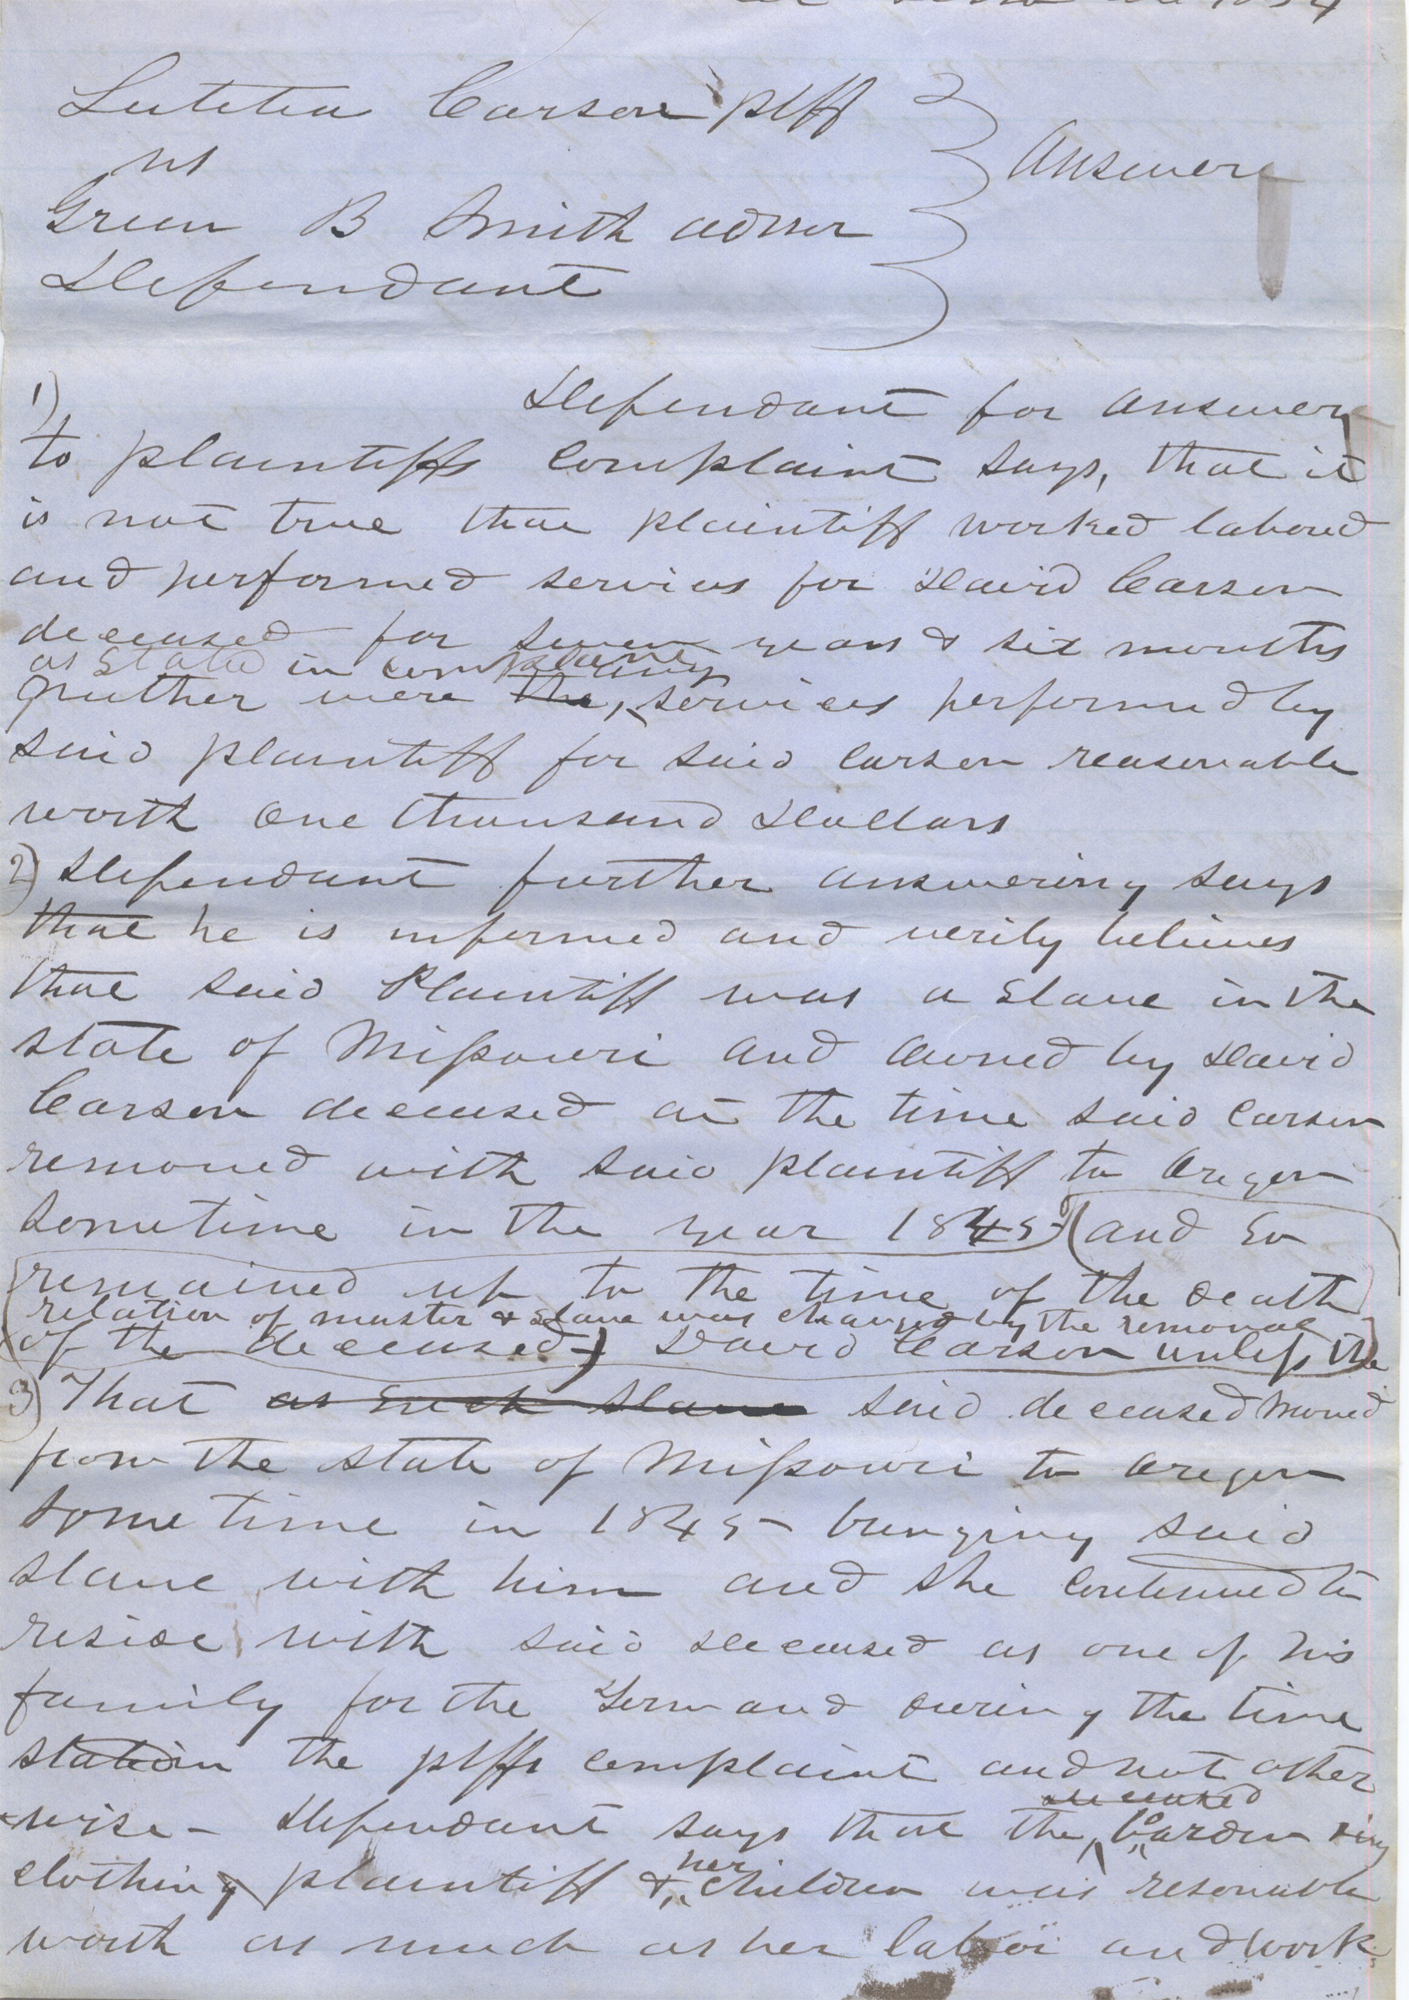 1854
Lutitia Carson plff
vs
Green B Smith admr
Defendant
Answer
1) Defendant for answer
to plaintiffs complaint says, that it
is not true that plaintiff worked labored
and performed services for David Carson
deceased for seven years & six months
as stated in complaint
neither were the, services performed by
said plaintiff for said carson reasonable
worth one thousand Dollars
2) Defendant further answering says
that he is informed and verily believes
that said Plaintiff was a slave in the
state of Missouri and owned by David
Carson deceased at the time said Carson
removed with said plaintiff to Oregon
sometime in the year 1845 (and so
remained up to the time of the death
relation of master & slave was changed by the removal
of the deceased) David Carson unless the
3) That as such slave said deceased moved
from the state of Missouri to Oregon
some time in 1845 – bringing said
slave with him and she continued to
reside with said deceased as one of his
family for the Term and during the time
stated in the plffs complaint and not other
deceased
wise – Defendant says that the, boarding
clothing plaintiff &, children was resonable
her
worth as much as her labor and work